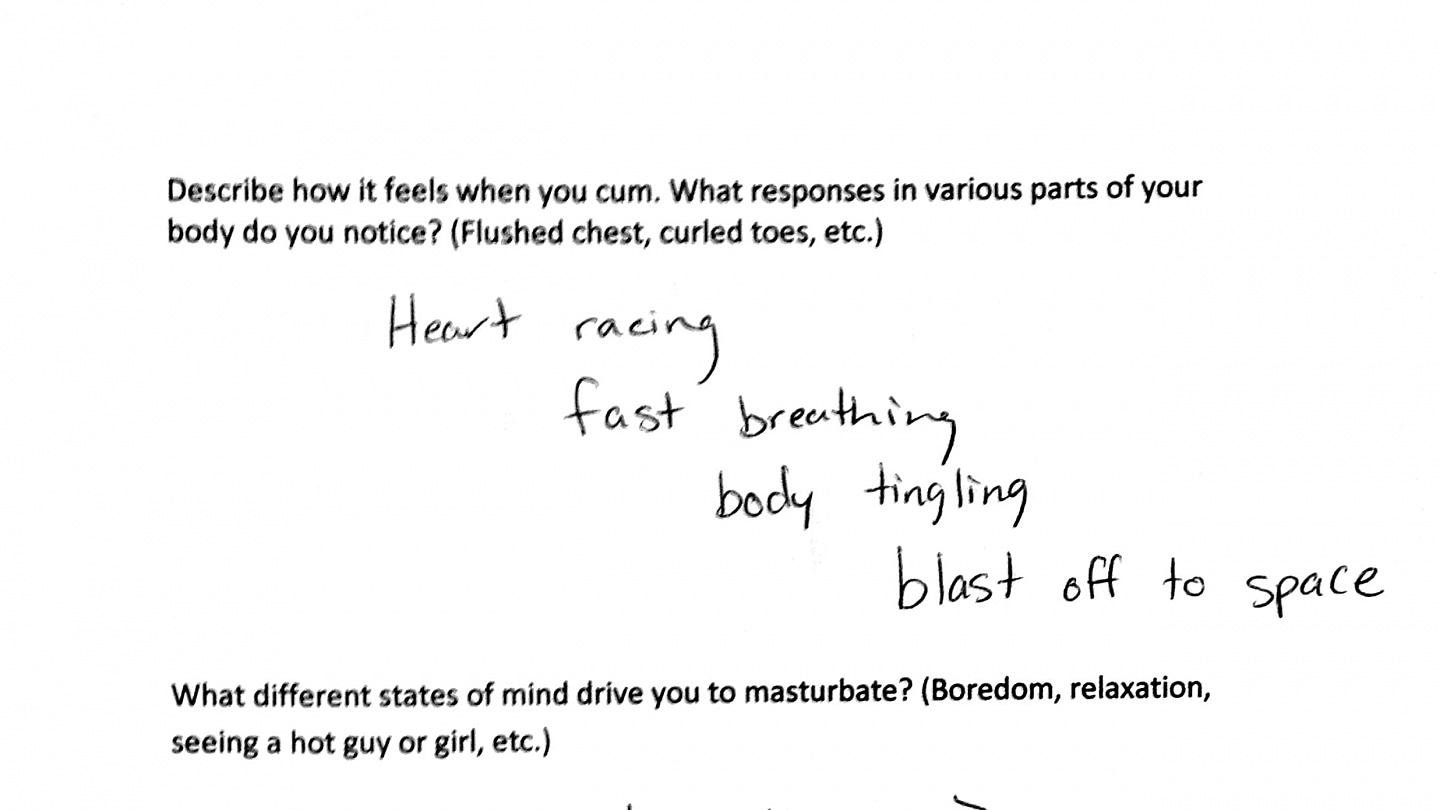 Describe how it feels when you cum. What responses in various parts of your
body do you notice? (Flushed chest, curled toes, etc.)
Heart racing
fast breathing
body tingling
blast off to space
What different states of mind drive you to masturbate? (Boredom, relaxation,
seeing a hot guy or girl, etc.)